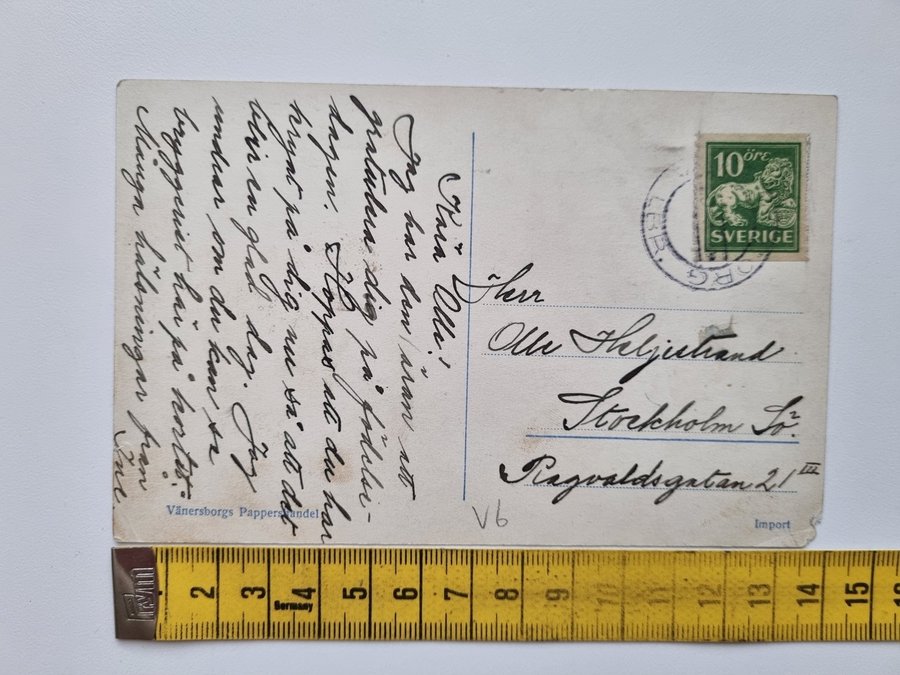 Kära Olle!
Jag har den äran att
gratulera dig på födelse-
dagen. Hoppas att du har
kryat på dig nu så att det
blir en glad dag. Jag
undrar om du kan se
bryggeriet här på kortet.
Många hälsningar från
Vänersborgs Pappershandel
10 öre
SVERIGE
ORG
Herr
Olle Heljestrand
Stockholm Sö.
Ragvaldsgatan 21 III
V6
Import
2 3 4 5 6 7 8 9 10 11 12 13 14 15
Germany